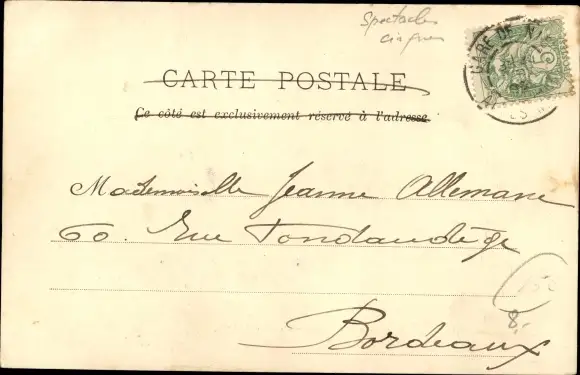 Spectacles
cirques
GARE DE
5
CARTE POSTALE
Ce côté est exclusivement réservé à l'adresse
Mademoiselle Jeanne Allemane
60. Rue Fondaudège
8.
Bordeaux